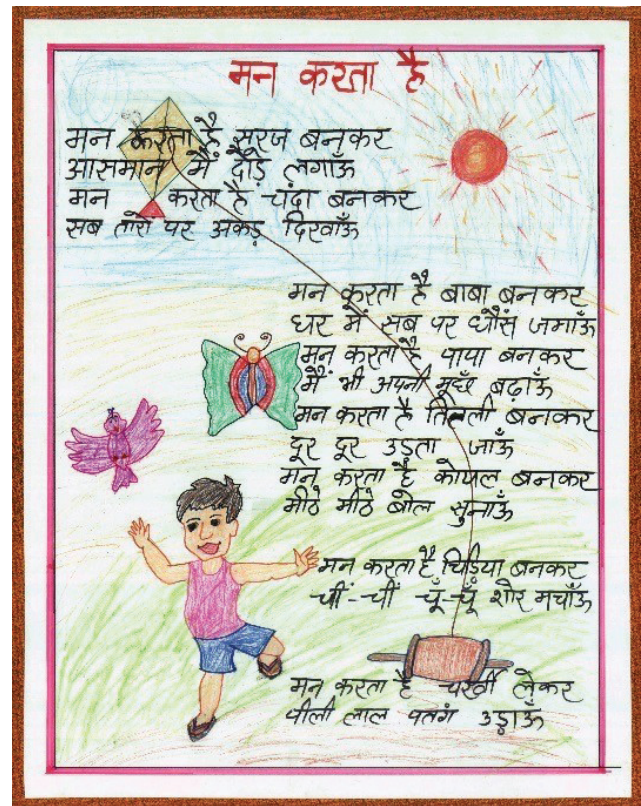 मन करता है
मन करता है सूरज बनकर
आसमान में दौड़ लगाऊँ
मन करता है चंदा बनकर
सब तारों पर अकड़ दिखाऊँ
मन करता है बाबा बनकर
घर में सब पर धौंस जमाऊँ
मन करता है पापा बनकर
मैं भी अपनी मूछँ बढ़ाऊँ
मन करता है तितली बनकर
दूर दूर उड़ता जाऊँ
मन करता है कोयल बनकर
मीठे मीठे बोल सुनाऊँ
मन करता है चिड़िया बनकर
चीं-चीं चूँ-चूँ शोर मचाऊँ
मन करता है चरखी लेकर
पीली लाल पतंग उड़ाऊँ